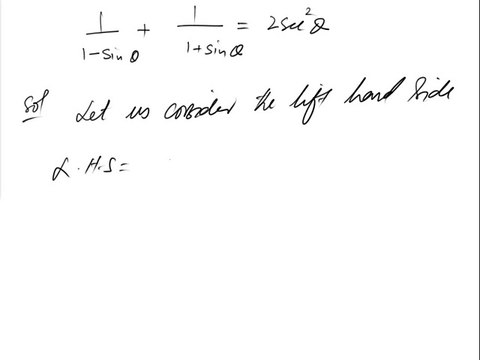 1/(1-sinθ) + 1/(1+sinθ) = 2sec²θ
Sol Let us consider the lift hand side
L.H.S=